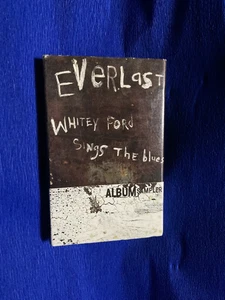 EVERLAST
WHITEY FORD
SINGS THE blues
ALBUM SAMPLER